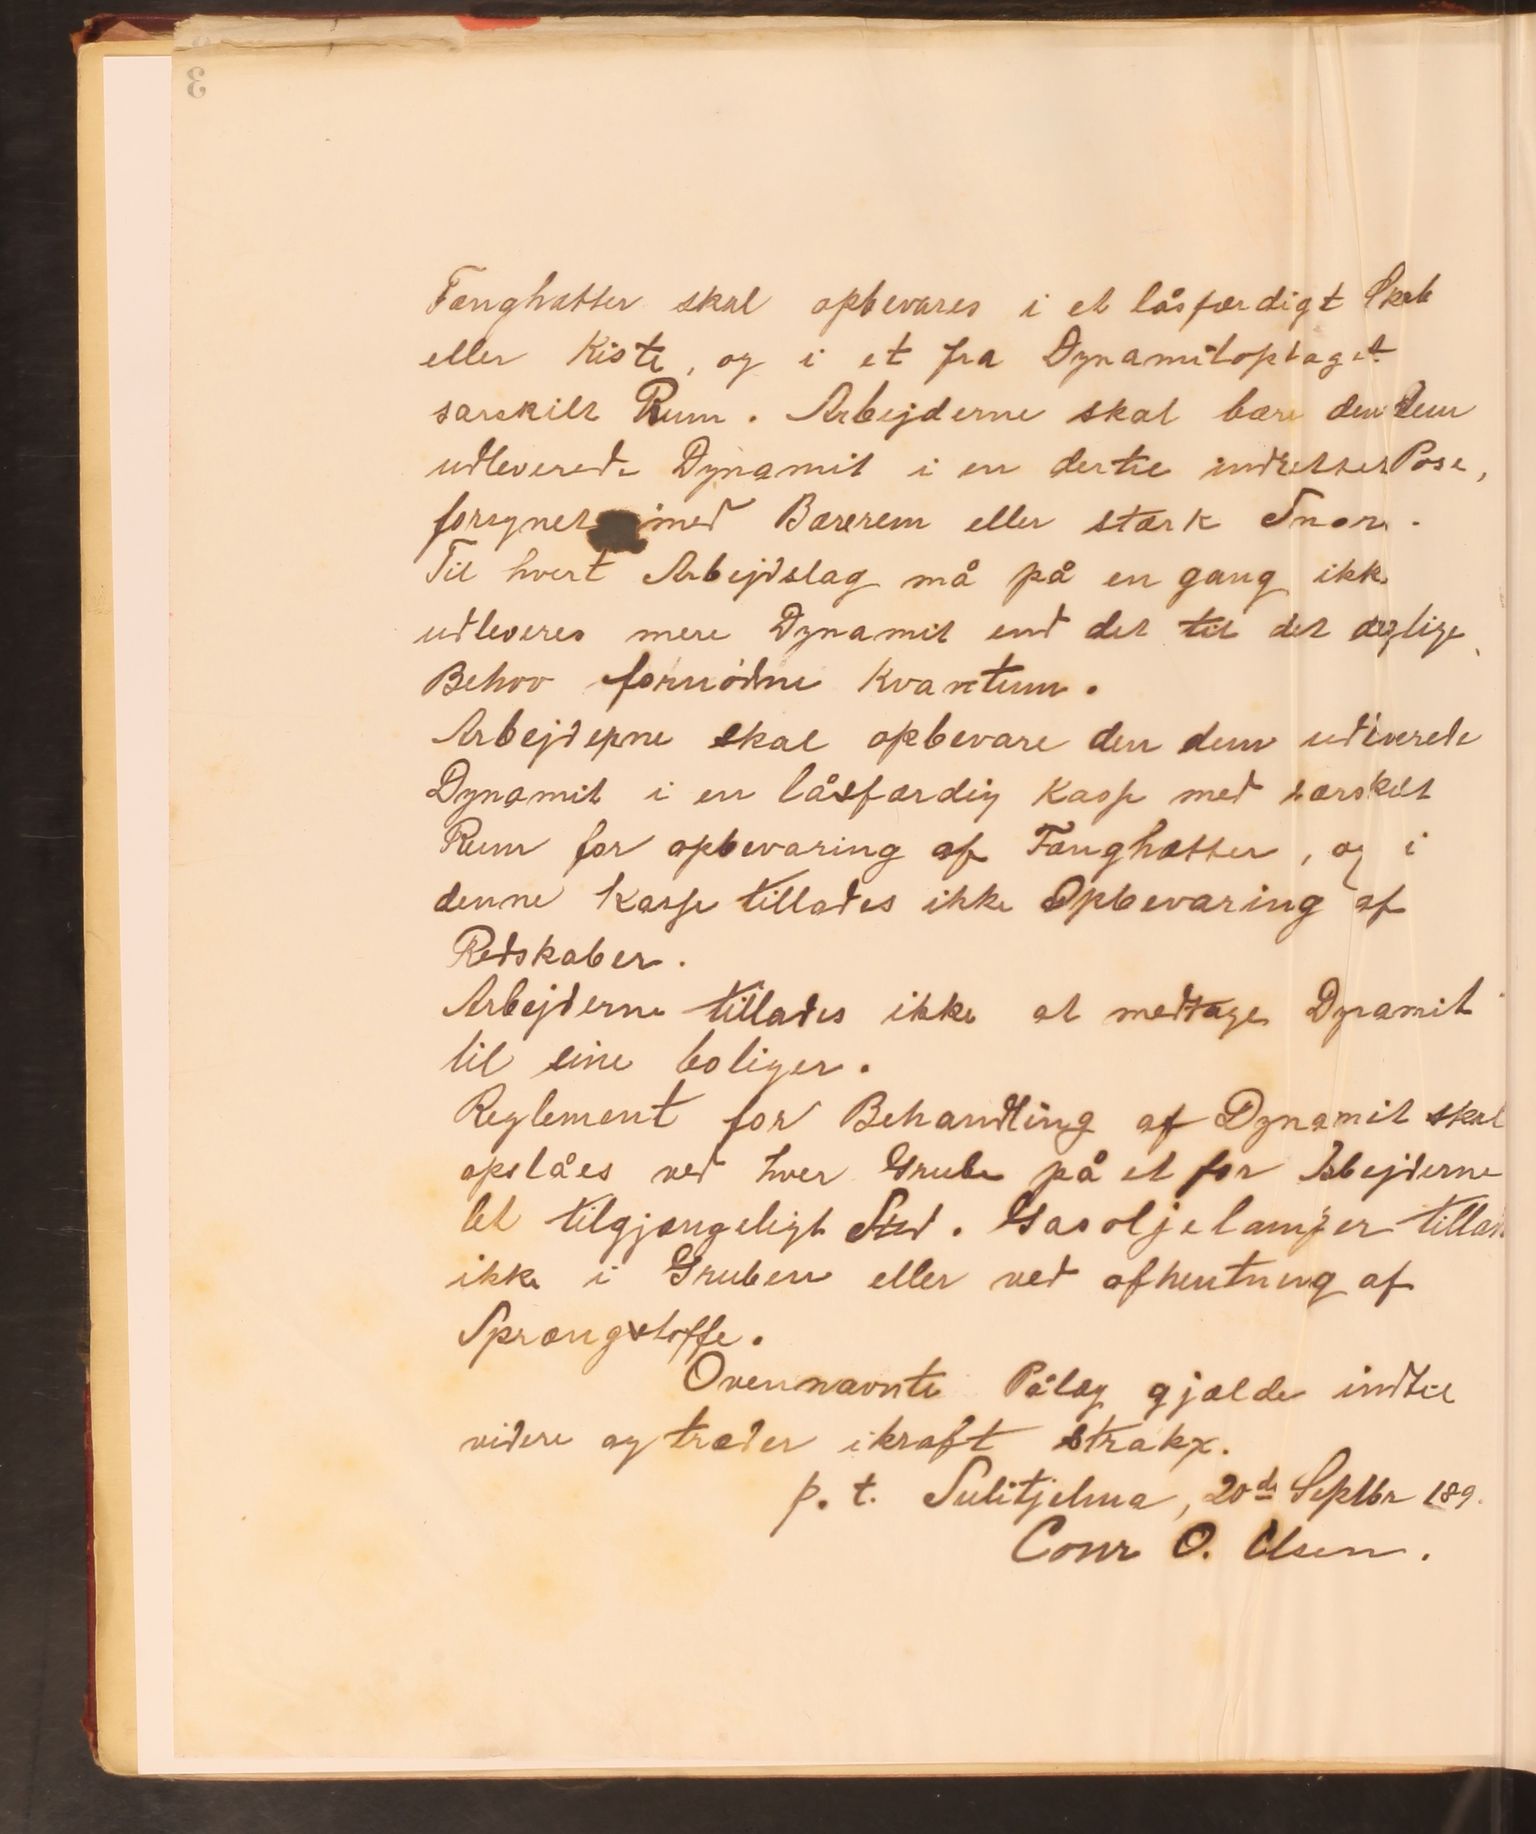 Fænghætter skal opbevares i et låsfærdigt Skab
eller Kiste, og i et fra Dynamitoplaget
særskilt Rum. Arbejderne skal bære den dem
udleverede Dynamit i en dertil indrettet Pose,
forsynet med Bærerem eller stærk Snor.
Til hvert Arbejdslag må på en gang ikke
udleveres mere Dynamit end det til det daglige
Behov fornødne Kvantum.
Arbejderne skal opbevare den dem udleverede
Dynamit i en låsfærdig Kasse med særskilt
Rum for opbevaring af Fænghætter, og i
denne Kasse tillades ikke Opbevaring af
Redskaber.
Arbejderne tillades ikke at medtage Dynamit
til sine boliger.
Reglement for Behandling af Dynamit skal
opslåes ved hver Grube på et for Arbejderne
let tilgjængeligt Sted. Gasoljelamper tillades
ikke i Gruben eller ved afhentning af
Sprængstoffe.
Ovennævnte Pålæg gjælde indtil
videre og træder ikraft strakx.
p. t. Sulitjelma, 20de Septbr 189
Conr O. Olsen.
3